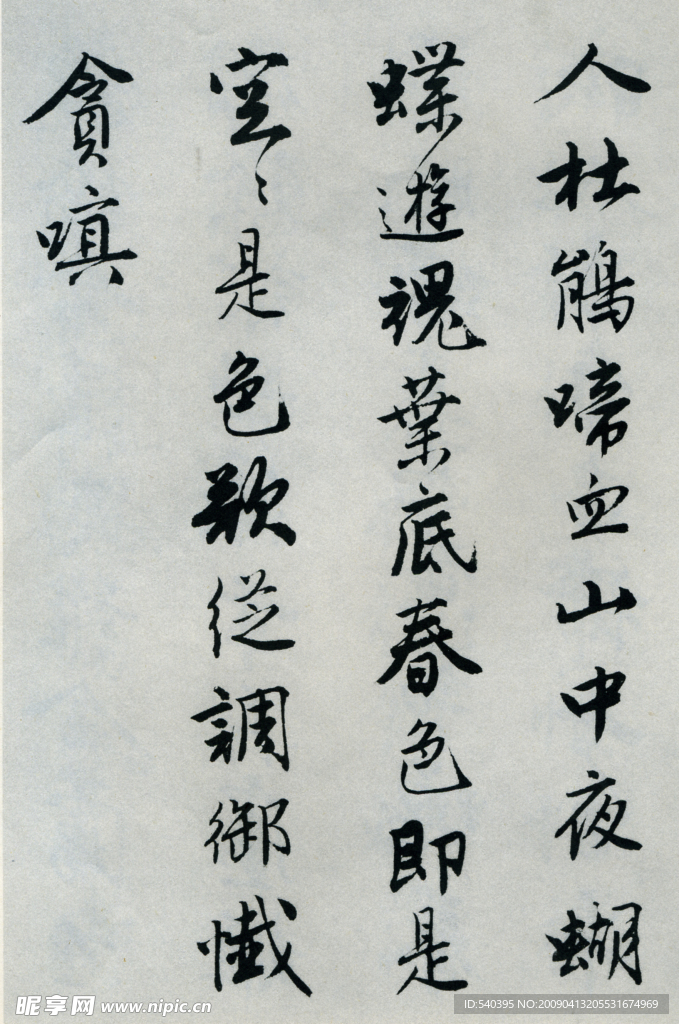 人杜鵑啼血山中夜蝴
蝶遊魂葉底春色即是
空〻是色欲從調御懺
貪嗔
昵享网 www.nipic.cn
ID:540395 NO:20090413205531674969